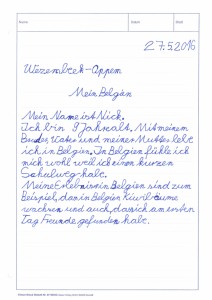 Name
Datum
Blatt
27.5.2016
Wezembeek-Oppem
Mein Belgien
Mein Name ist Nick.
Ich bin 9 Jahre alt. Mit meinem
Bruder, Vater und meiner Mutter lebe
ich in Belgien. In Belgien fühle ich
mich wohl weil ich einen kurzen
Schulweg habe.
Meine Erlebnisse in Belgien sind zum
Beispiel, das in Belgien Kiwibäume
wachsen und auch, dass ich am ersten
Tag Freunde gefunden habe.